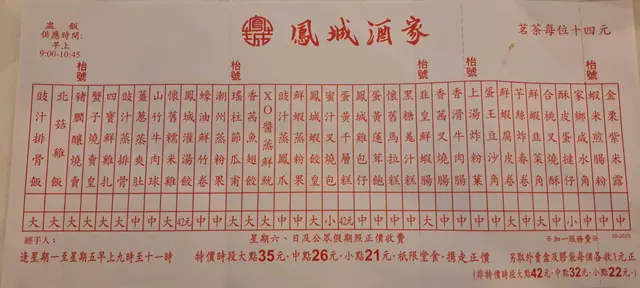 盅飯
供應時間:
早上
9:00-10:45
鳳城酒家
茗茶每位十四元
枱號
枱號
枱號
枱號
金栗紫米露 中
蝦米煎腸粉 中
家鄉咸水角 小
酥皮蛋撻仔 中
合桃叉燒
芋絲炸春卷 中
鮮蝦腐皮卷 中
蛋王豆沙角 中
上湯炸粉果
香滑牛肉腸 中
香茜叉燒腸 中
韭皇鮮蝦腸 大
黑糖馬汁糕 中
懷舊馬拉糕 中
蛋黃蓮茸飽 中
鳳城雞包仔 中
蛋黃千層糕 42元
蜜汁叉燒包 小
鳳城蝦餃皇 大
鮮蝦蒸粉
豉汁蒸鳳爪 中
XO醬蒸鮮魷 大
香茜魚
瑤柱節瓜甫 大
潮州蒸粉果 中
蠔油鮮竹卷 中
鳳城灌湯餃 42元
懷舊糯米雞 大
山竹牛肉球 中
薑葱蒸爽肚 大
豉汁蒸排骨 中
四寶鮮雞扎 大
蟹子燒賣皇 大
豬膶釀燒賣 大
北菇雞飯 大
豉汁排骨飯 大
經手人:
星期六、日及公眾假期照正價收費
※加一服務費※
逢星期一至星期五早上九時至十一時
特價時段大點35元·中點26元·小點21元·祇限堂食·携走正價
另取外賣盒及膠袋每個各收1元正
(非特價時段大點42元·中點32元·小點22元·)